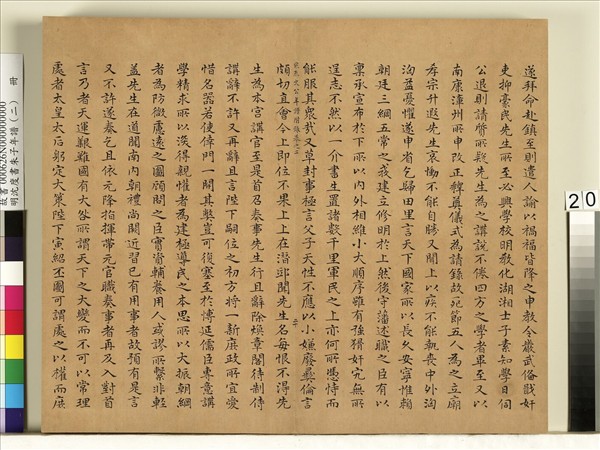 遂拜命赴鎮至則遣人諭以禍福皆降之申教令嚴武備戢姦
吏抑豪民先生所至必興學校明教化湖湘士子素知學日伺
公退則請質所疑先生為之講說不倦四方之學者畢至又以
南康漳州所申改正釋奠儀式為請錄故死節五人為之立廟
孝宗升遐先生哀慟不能自勝又聞上以疾不能執喪中外洶
洶益憂懼遂申省乞歸田里言天下國家所以長久安寧惟賴
朝廷三綱五常之教建立修明於上然後守藩述職之臣有以
稟承宣布于下所以内外相維小大順序雖有強猾姦宄無所
逞志不然以一介書生置諸數千里軍民之上亦何所憑恃而
能服其衆哉又草封事極言父子天性不應以小嫌廢彝倫言
頗切直會今上即位不果上上在潛邸聞先生名每恨不得先
生為本宮講官至是首召奏事先生行且辭除煥章閣待制侍
講辭不許又再辭且言陛下嗣位之初方將一新庶政所宜愛
惜名器若使倖門一開其弊豈可復塞至於博延儒臣專意講
學精求所以深得親懽者為建極導民之本思所以大振朝綱
者為防微慮遠之圖顧問之臣實資輔養用人或謬所繫非輕
蓋先生在道聞南内朝禮尚闕近習已有用事者故預有是言
又不許遂奏乞且依元降指揮帶元官職奏事者再及入對首
言乃者天運艱難國有大咎所謂天下之大變而不可以常理
處者太皇太后躬定大策陛下寅紹丕圖可謂處之以權而庶
故書000626N000000000
明沈度書朱子年譜(二) 冊
20